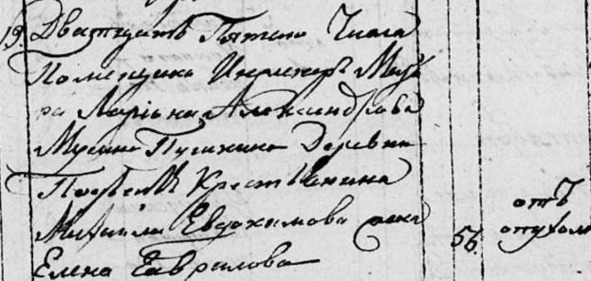 19. Дватцать Пятаго Числа
Помещика Инженер Маіо
ра Ларіона Александрова
Мусина Пушкина Деревни
Крестьянина
Михаила Евдокимова жена
Елена Гаврилова
56.
отъ
опухоли